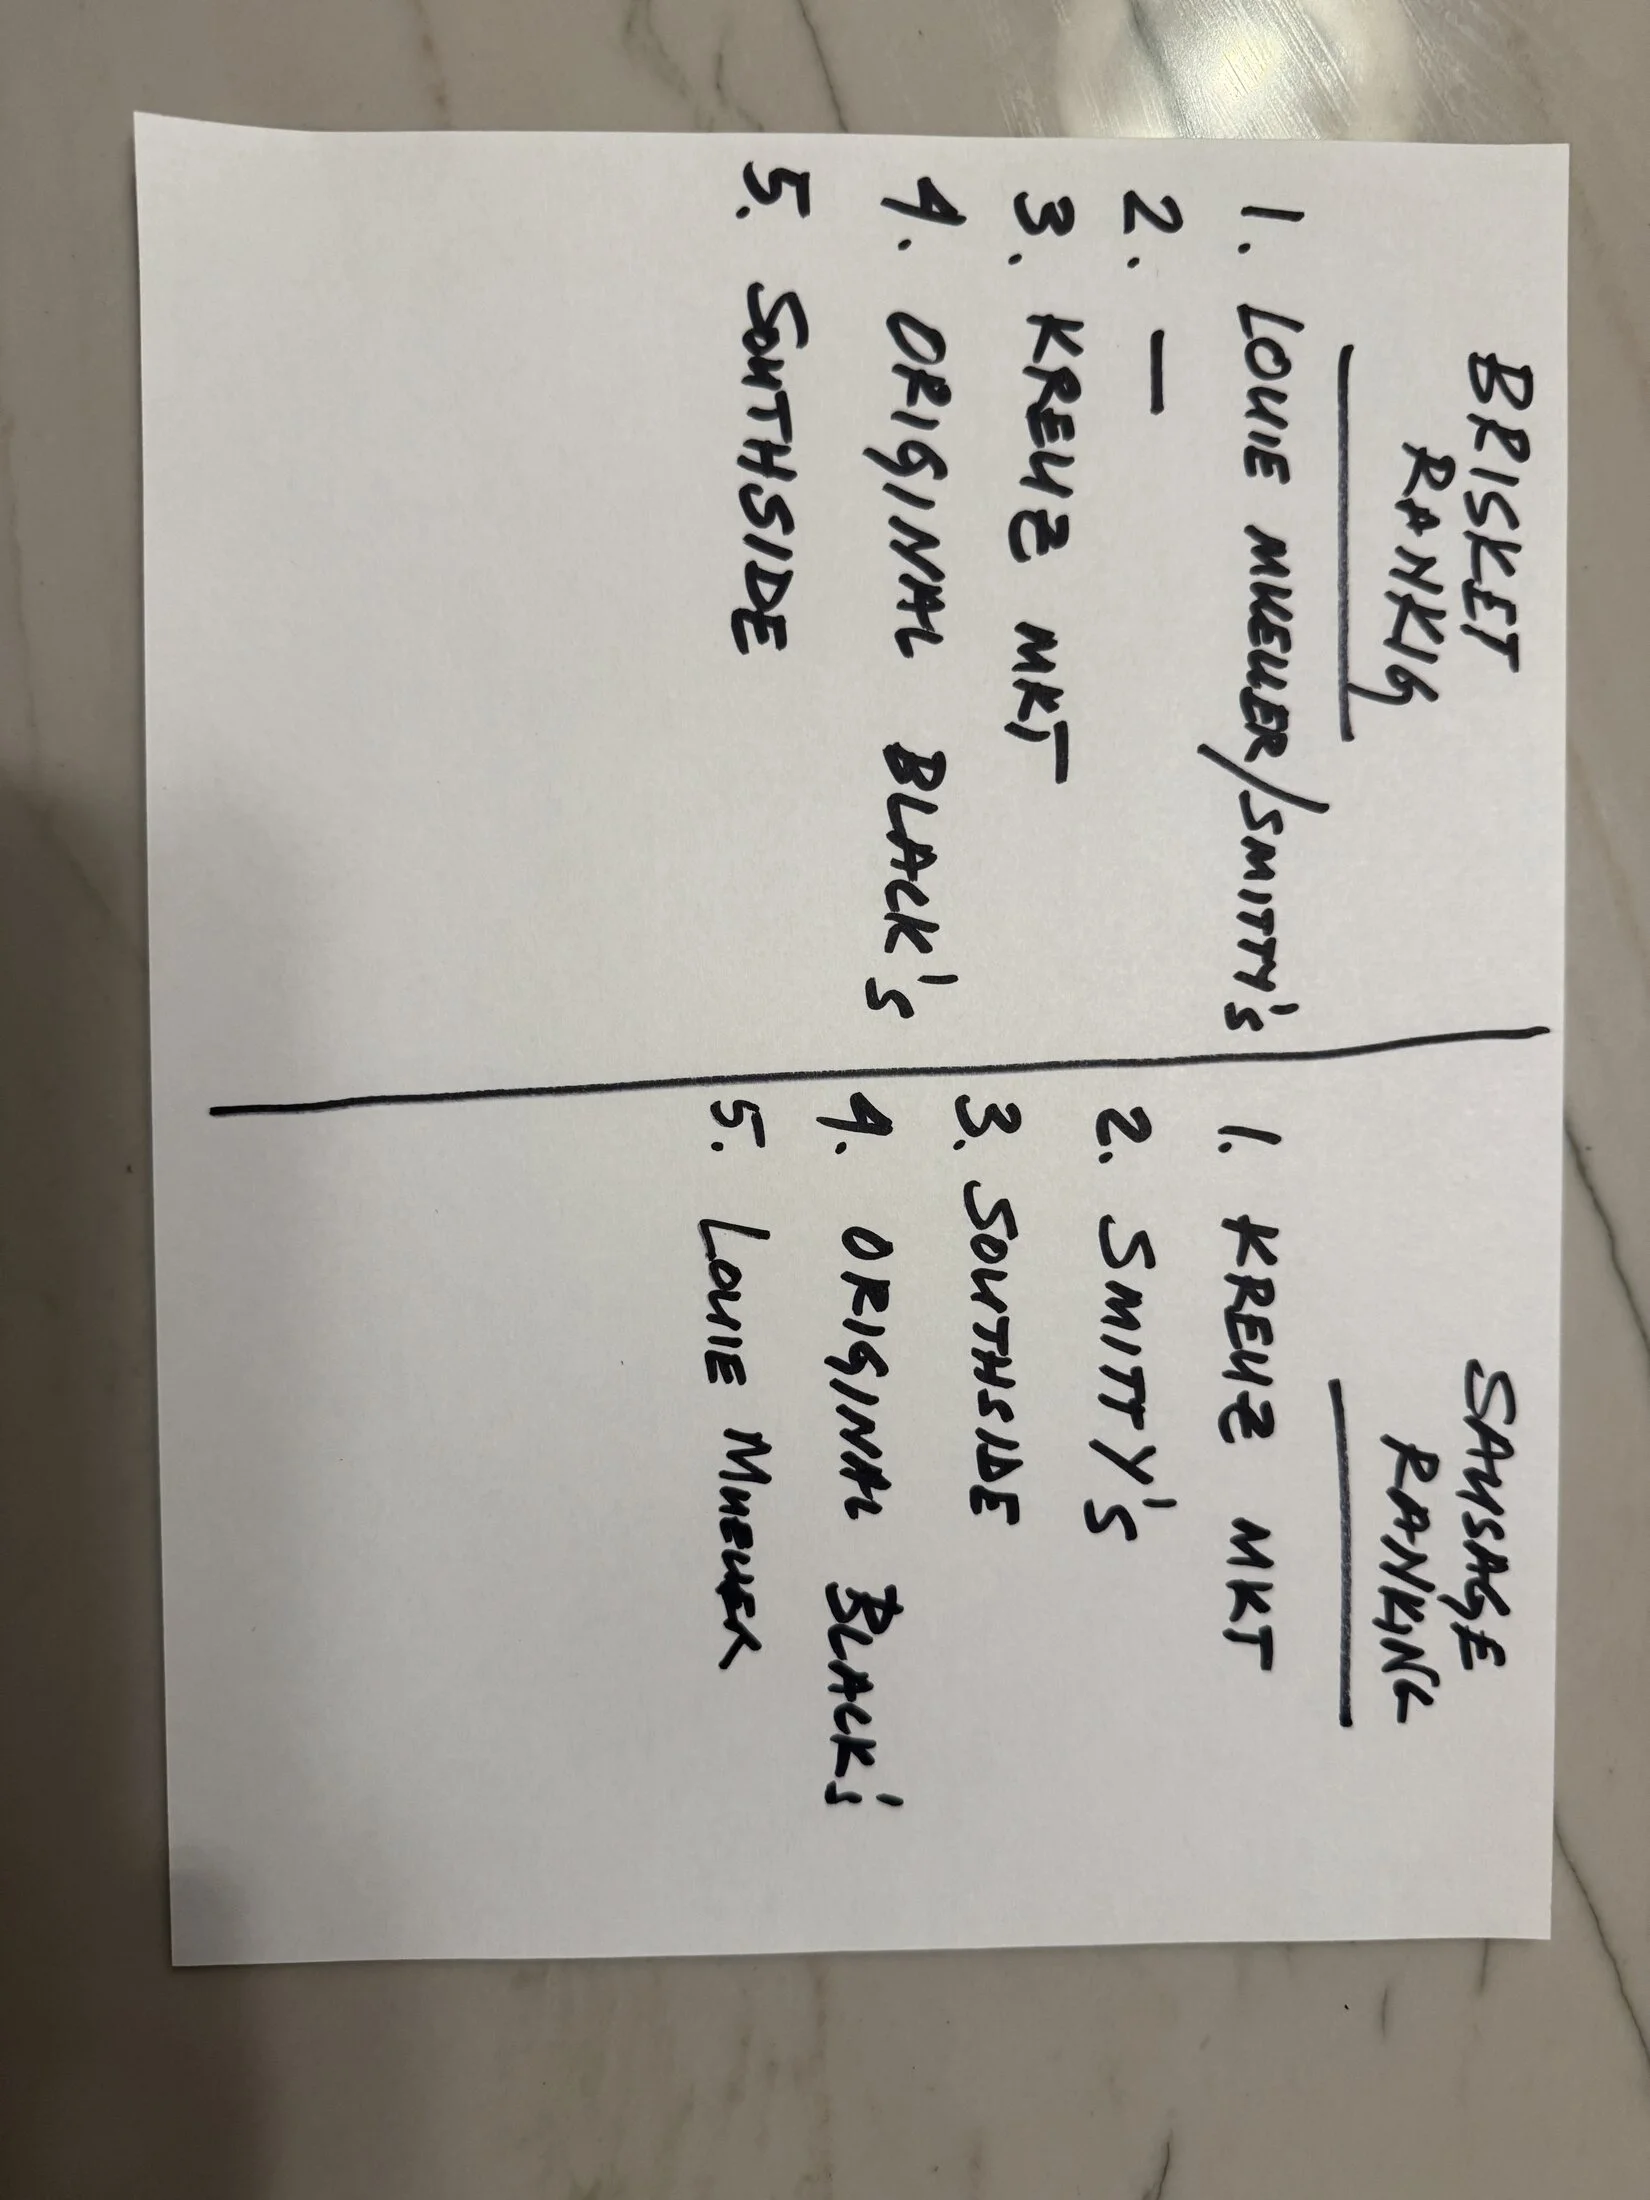 BRISKET
RANKIG
1. LOUIE MUELLER/SMITTY'S
2. —
3. KREUZ MKT
4. ORIGINAL BLACK'S
5. SOUTHSIDE
SAUSAGE
RANKING
1. KREUZ MKT
2. SMITTY'S
3. SOUTHSIDE
4. ORIGINAL BLACK'S
5. LOUIE MUELLER